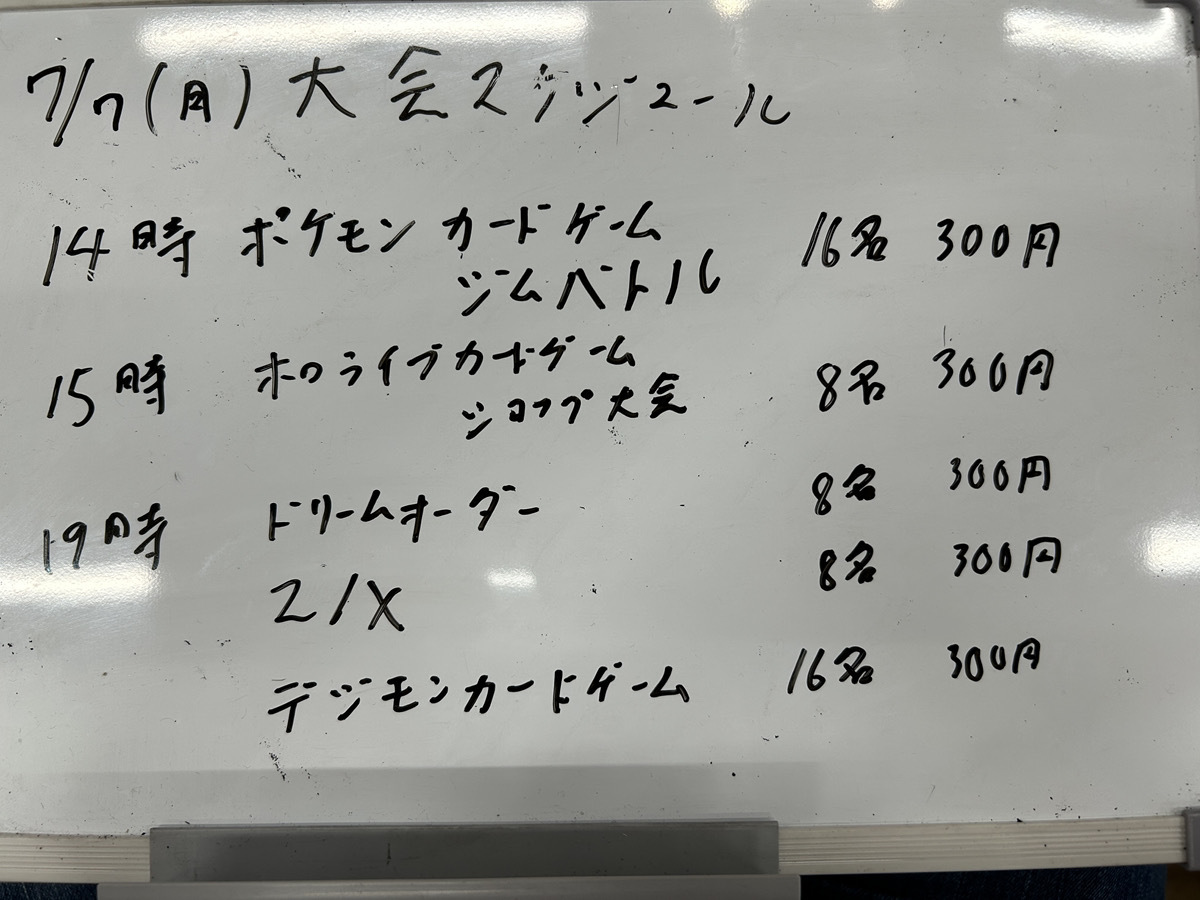 7/7(月)大会スケジュール
14時 ポケモンカードゲーム 16名 300円
ジムバトル
15時 ホロライブカードゲーム 8名 300円
ショップ大会
19時 ドリームオーダー 8名 300円
Z/X 8名 300円
デジモンカードゲーム 16名 300円